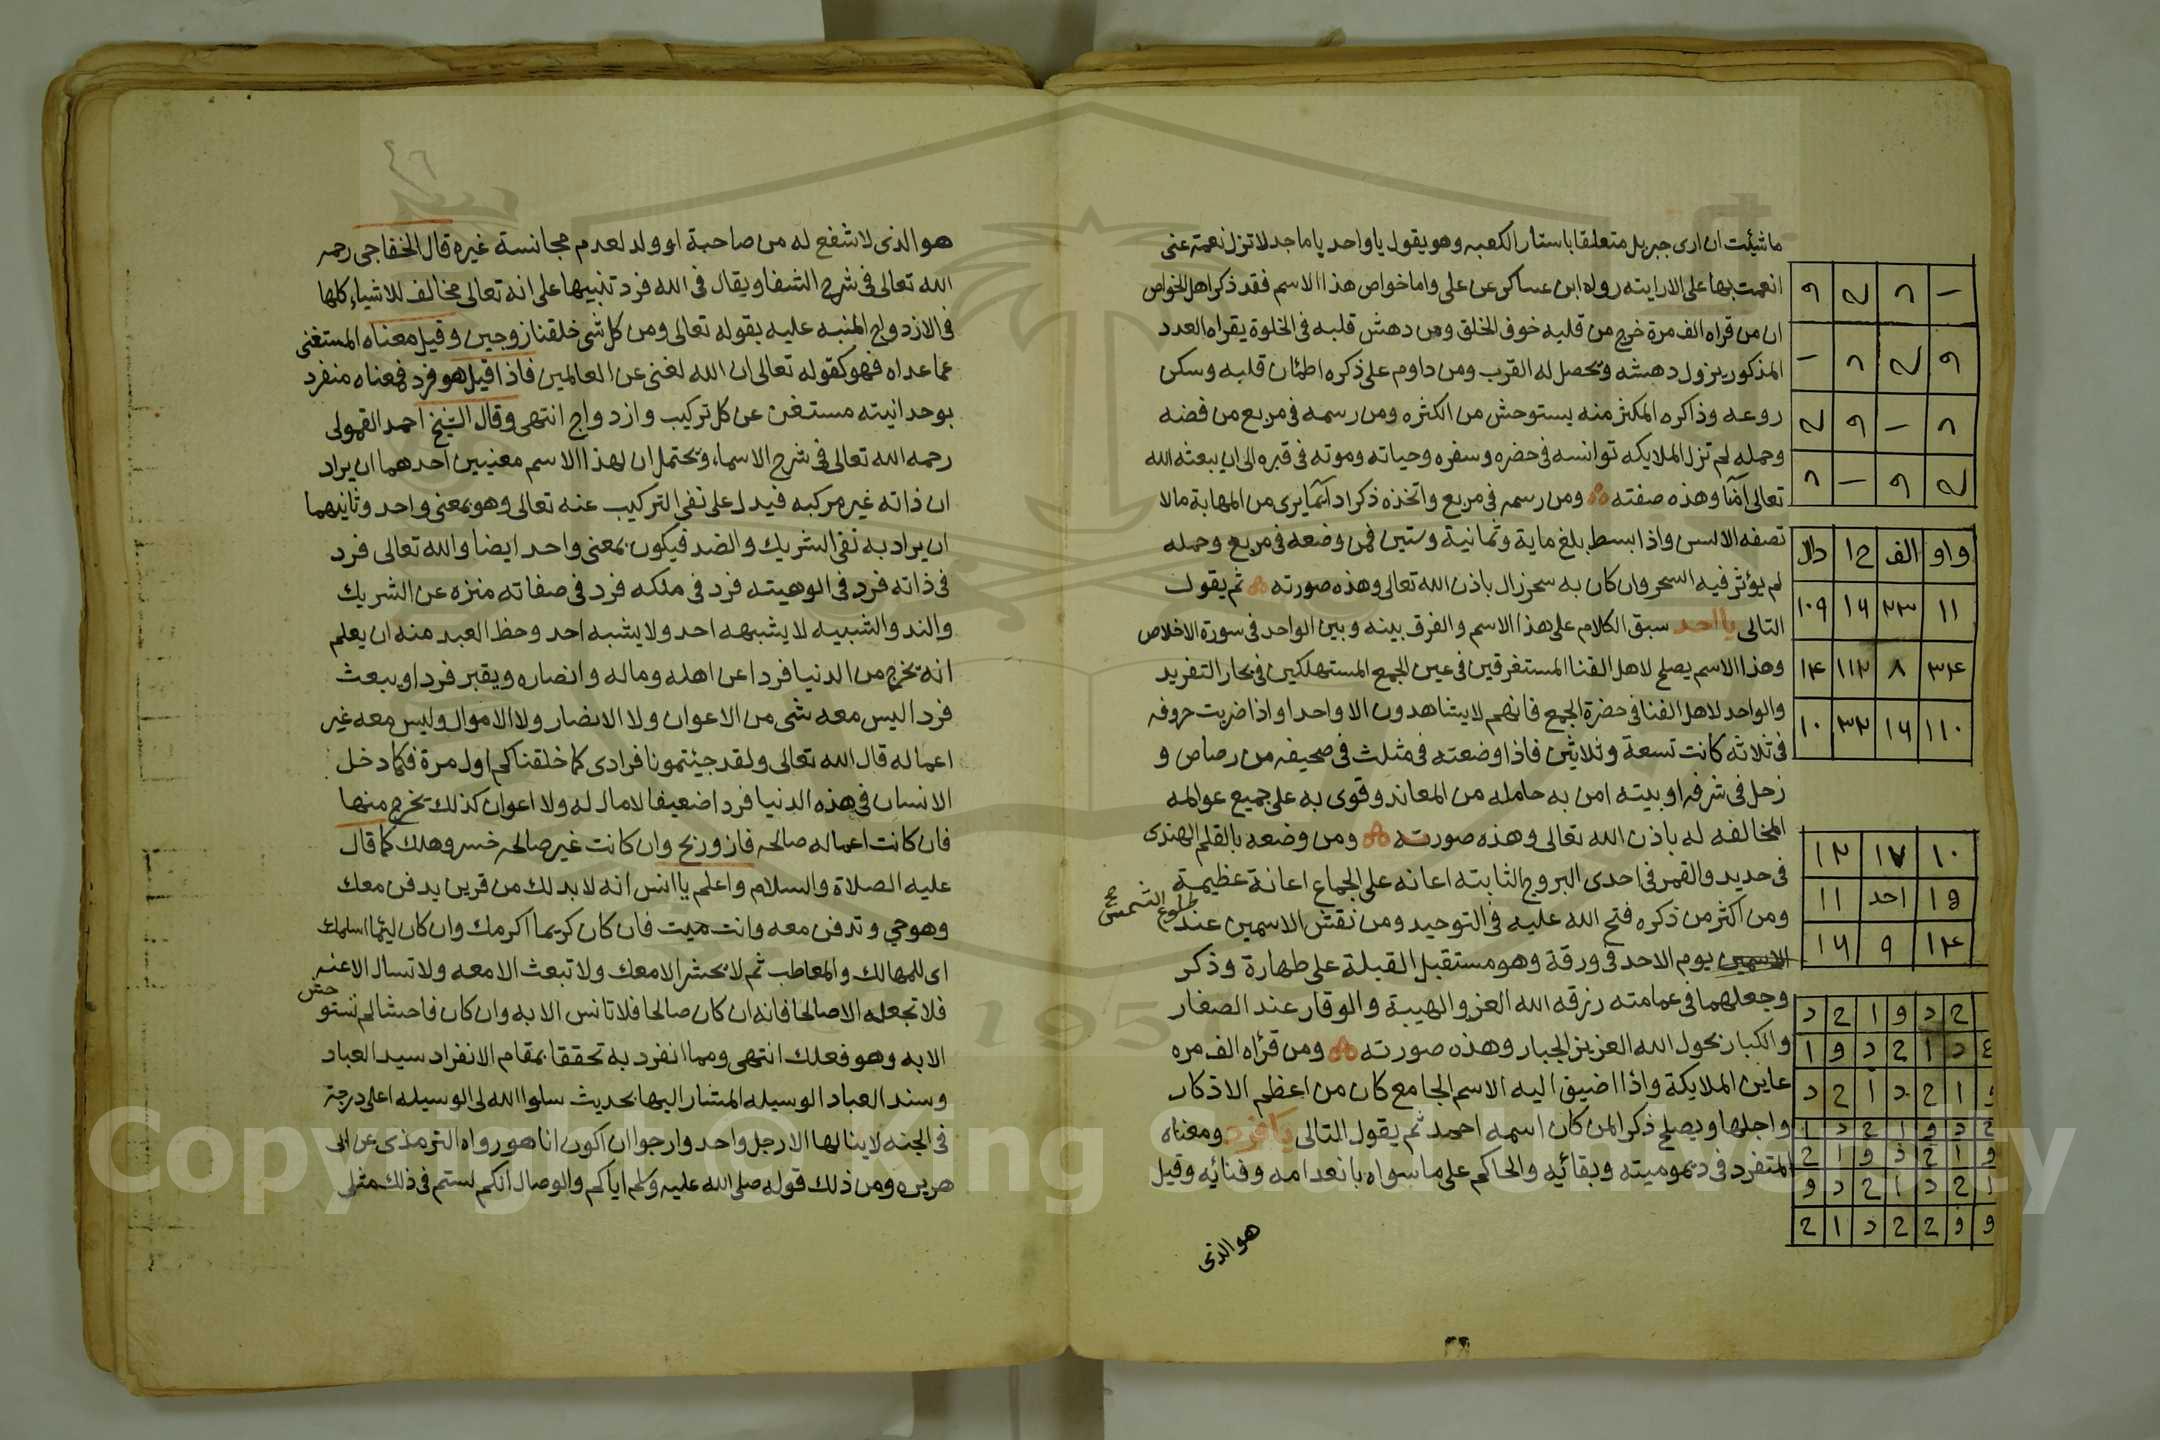 ما شئت ان ارى جبريل متعلقا باستار الكعبه وهو يقول يا واحد يا ماجد لا تزل نعمة عنى
انعمت بها على الا رايته رواه ابن عساكر عن على واما خواص هذا الاسم فقد ذكر اهل الخواص
ان من قراه الف مرة خرج من قلبه خوف الخلق ومن دهش قلبه فى الخلوة يقراه العدد
المذكور يزول دهشه ويحصل له القرب ومن داوم على ذكره اطمئان قلبه وسكن
روعه وذاكره المكثر منه يستوحش من الكثره ومن رسمه فى مربع من فضه
وحمله لم تزل الملايكه توانسه فى حضره وسفره وحياته وموته فى قبره الى ان يبعثه الله
تعالى آمنا وهذه صفته ومن رسمه فى مربع واتخذه ذكرا دآئما يرى من المهابة مالا
تصفه الالسن واذا بسط بلغ ماية وثمانية وستين فمن وضعه فى مربع وحمله
لم يؤثر فيه السحر وان كان به سحر زال باذن الله تعالى وهذه صورته ثم يقول
التالى يا احد سبق الكلام على هذا الاسم والفرق بينه وبين الواحد فى سورة الاخلاص
وهذا الاسم يصلح لاهل الفنا المستغرقين فى عين الجمع المستهلكين فى بحار التفريد
والواحد لاهل الفنا فى حضرة الجمع فانهم لا يشاهدون الا واحدا واذا ضربت حروفه
فى ثلاثة كانت تسعة وثلاثين فاذا وضعته فى مثلث فى صحيفه من رصاص و
زحل فى شرفه او بيته امن به حامله من المعاند وقوى به على جميع عوالمه
المخالفه له باذن الله تعالى وهذه صورته ومن وضعه بالقلم الهندى
فى حديد والقمر فى احدى البروج الثابته اعانه على الجماع اعانة عظيمة
ومن اكثر من ذكره فتح الله عليه فى التوحيد ومن نقش الاسمين عند طلوع الشمس صح
الاسمين يوم الاحد فى ورقة وهو مستقبل القبلة على طهارة وذكر
وجعلهما فى عمامته رزقه الله العز والهيبة والوقار عند الصغار
والكبار بحول الله العزيز الجبار وهذه صورته ومن قرأه الف مره
عاين الملايكة واذا اضيف اليه الاسم الجامع كان من اعظم الاذكار
واجلها ويصلح ذكرا لمن كان اسمه احمد ثم يقول التالى يا فرد ومعناه
المتفرد فى ديموميته وبقائيه والحاكم على ما سواه بانعدامه وفنائيه وقيل
هو الذى
واو الف حا دال
١١ ٢٣ ١٦ ١٠٩
٣٤ ٨ ١١٢ ١٤
١١٠ ١٦ ٣٢ ١٠
١٠ ١٧ ١٢
١٩ احد ١١
١٤ ٩ ١٦
هو الذى لا شفع له من صاحبة او ولد لعدم مجانسة غيره قال الخفاجى رحمه
الله تعالى فى شرح الشفا ويقال فى الله فرد تنبيها على انه تعالى مخالف للاشياء كلها
فى الازدواج المنبه عليه بقوله تعالى ومن كل شى خلقنا زوجين وقيل معناه المستغنى
عما عداه فهو كقوله تعالى ان الله لغنى عن العالمين فاذا قيل هو فرد فمعناه منفرد
بوحدانيته مستغن عن كل تركيب وازدواج انتهى وقال الشيخ احمد القمولى
رحمه الله تعالى فى شرح الاسماء ويحتمل ان لهذا الاسم معنيين احدهما ان يراد
ان ذاته غير مركبه فيدل على نفى التركيب عنه تعالى وهو بمعنى واحد وثانيهما
ان يراد به نفى الشريك والضد فيكون بمعنى واحد ايضا والله تعالى فرد
فى ذاته فرد فى الوهيته فرد فى ملكه فرد فى صفاته منزه عن الشريك
والند والشبيه لا يشبهه احد ولا يشبه احد وحظ العبد منه ان يعلم
انه يخرج من الدنيا فردا عن اهله وماله وانصاره ويقبر فردا ويبعث
فردا ليس معه شى من الاعوان ولا الانصار ولا الاموال وليس معه غير
اعماله قال الله تعالى ولقد جيئتمونا فرادى كما خلقناكم اول مرة فكما دخل
الانسان فى هذه الدنيا فردا ضعيفا لا مال له ولا اعوان كذلك يخرج منها
فان كانت اعماله صالحه فاز وربح وان كانت غير صالحه خسر وهلك كما قال
عليه الصلاة والسلام واعلم يا انس انه لا بد لك من قرين يدفن معك
وهو حي وتدفن معه وانت ميت فان كان كريما اكرمك وان كان لئيما اسلمك
اى للمهالك والمعاطب ثم لا يحشر الا معك ولا تبعث الا معه ولا تسال الا عنه
فلا تجعله الا صالحا فانه ان كان صالحا فلا تانس الا به وان كان فاحشا لم تستوحش
الا به وهو فعلك انتهى ومما انفرد به تحققا بمقام الانفراد سيد العباد
وسند العباد الوسيله المشار اليها بحديث سلوا الله لى الوسيله اعلى درجة
فى الجنه لا ينالها الا رجل واحد وارجوا ان اكون انا هو رواه الترمذى عن ابى
هريره ومن ذلك قوله صلى الله عليه وسلم اياكم والوصال انكم لستم فى ذلك مثلى
Copyright © King Saud University
1957